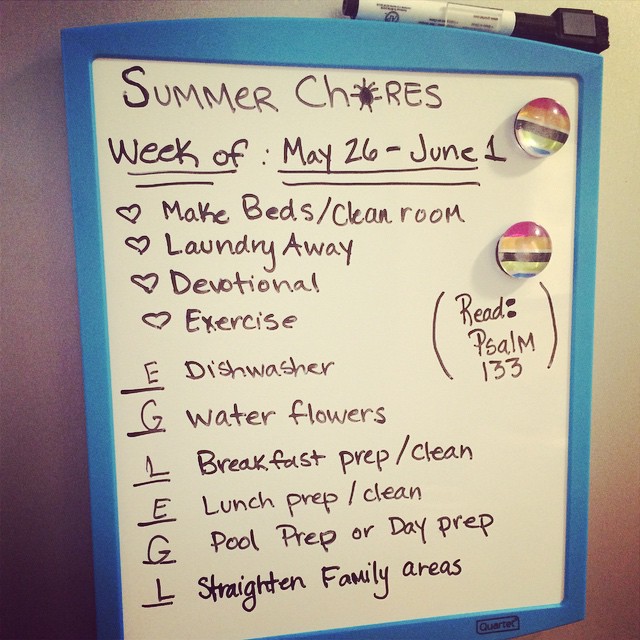 Summer Chores
Week of: May 26 - June 1
Make Beds/Clean room
Laundry Away
Devotional
Exercise
(Read:
Psalm
133)
E Dishwasher
G water flowers
L Breakfast prep/clean
E Lunch prep/clean
G Pool Prep or Day prep
L Straighten Family areas
Quartet